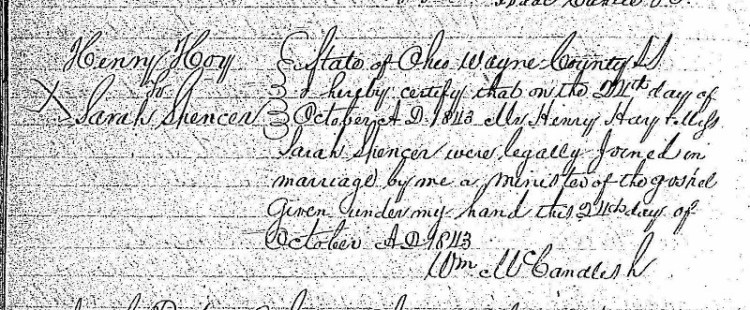 Henry Hoy
to
Sarah Spencer
State of Ohio Wayne County SS
I hereby certify that on the 24th day of
October A D 1843 Mr Henry Hoy & Miss
Sarah Spencer were legally Joined in
marriage by me a minister of the gospel
Given under my hand this 24th day of
October A D 1843
Wm McCandlish